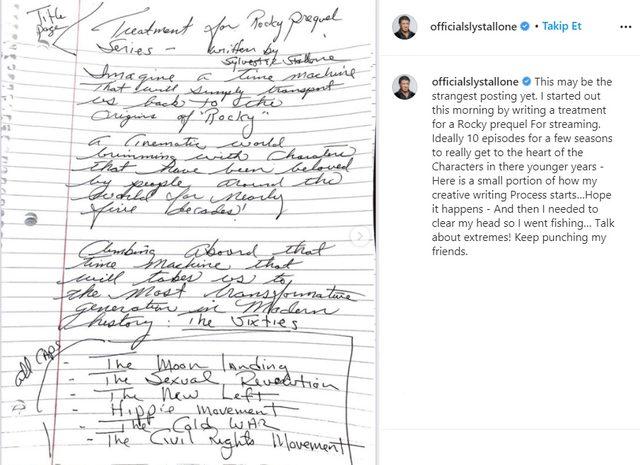 Title
page
Treatment for Rocky prequel
Series - written by
Sylvester Stallone
Imagine a time machine
that will simply transport
us back to the
Origins of "Rocky"
a Cinematic world
brimming with Characters
that have been beloved
by people around the
world for nearly
five decades!
Climbing Aboard that
time machine that
will takes us to
the Most transformative
generation in Modern
history: The Sixties
all CAPS
- The Moon landing
- The Sexual Revolution
- The New Left
- Hippie Movement
- The Cold WAR
- The Civil Rights Movement
officialslystallone • Takip Et
officialslystallone This may be the
strangest posting yet. I started out
this morning by writing a treatment
for a Rocky prequel For streaming.
Ideally 10 episodes for a few seasons
to really get to the heart of the
Characters in there younger years -
Here is a small portion of how my
creative writing Process starts...Hope
it happens - And then I needed to
clear my head so I went fishing... Talk
about extremes! Keep punching my
friends.